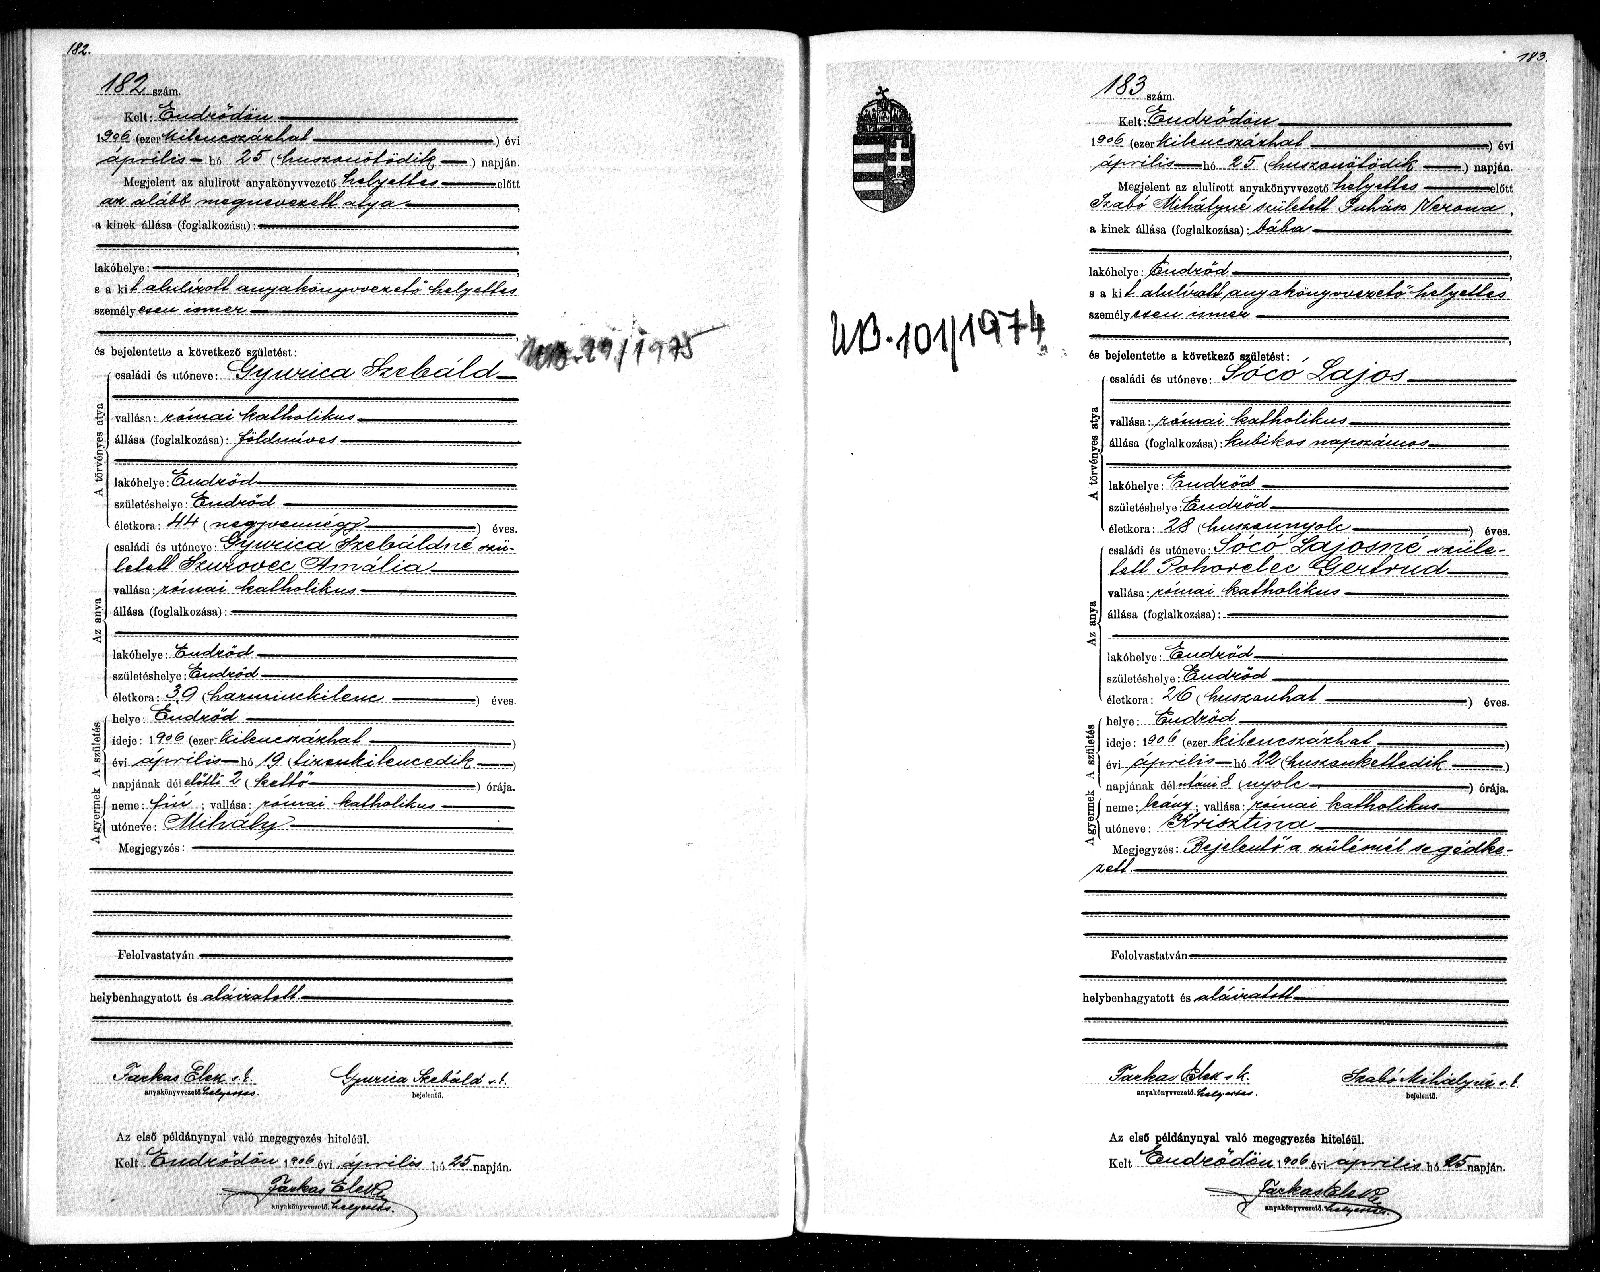 182.
182 szám.
Kelt: Endrődön
1906 (ezer kilencszázhat) évi
április hó 25 (huszonötödik) napján.
Megjelent az alulirott anyakönyvvezető helyettes előtt
az alább megnevezett atya,
a kinek állása (foglalkozása):
,
lakóhelye: ,
s a kit alulirott anyakönyvvezető helyettes
személyesen ismer
,
és bejelentette a következő születést:
A törvényes atya
családi és utóneve: Gyurica Szebáld
vallása: római katholikus
állása (foglalkozása): földmíves
lakóhelye: Endrőd
születéshelye: Endrőd
életkora: 44 (negyvennégy) éves.
Az anya
családi és utóneve: Gyurica Szebáldné szü-
letett Szurovec Amália
vallása: római katholikus
állása (foglalkozása):
lakóhelye: Endrőd
születéshelye: Endrőd
életkora: 39 (harminckilenc) éves
A születés
helye: Endrőd
ideje: 1906 (ezer kilencszázhat)
évi április hó 19 (tizenkilencedik)
napjának dél előtti 2 (kettő) órája.
A gyermek
neme: fiú; vallása: római katholikus
utóneve: Mihály
Megjegyzés:
Felolvastatván
helybenhagyatott és aláiratott
Farkas Elek s. k. Gyurica Szebáld s. k.
anyakönyvvezető helyettes. bejelentő.
Az első példánynyal való megegyezés hiteléül.
Kelt Endrődön 1906 évi április hó 25 napján.
Farkas Elek
anyakönyvvezető. helyettes.
UB. 29/1975
183.
UB. 101/1974
183 szám.
Kelt: Endrődön
1906 (ezer kilencszázhat) évi
április hó 25 (huszonötödik) napján.
Megjelent az alulirott anyakönyvvezető helyettes előtt
Szabó Mihályné született Juhász Verona,
a kinek állása (foglalkozása): bába
,
lakóhelye: Endrőd ,
s a kit alulirott anyakönyvvezető helyettes
személyesen ismer
,
és bejelentette a következő születést:
A törvényes atya
családi és utóneve: Sócó Lajos
vallása: római katholikus
állása (foglalkozása): kubikos napszámos
lakóhelye: Endrőd
születéshelye: Endrőd
életkora: 28 (huszonnyolc) éves.
Az anya
családi és utóneve: Sócó Lajosné szüle-
tett Pohorelec Gertrud
vallása: római katholikus
állása (foglalkozása):
lakóhelye: Endrőd
születéshelye: Endrőd
életkora: 26 (huszonhat) éves.
A születés
helye: Endrőd
ideje: 1906 (ezer kilencszázhat)
évi április hó 22 (huszonkettedik)
napjának dél utáni 8 (nyolc) órája.
A gyermek
neme: leány; vallása: római katholikus
utóneve: Krisztina
Megjegyzés: Bejelentő a szülésnél segédke-
zett.
Felolvastatván
helybenhagyatott és aláiratott
Farkas Elek s. k. Szabó Mihályné s. k.
anyakönyvvezető. helyettes. bejelentő.
Az első példánynyal való megegyezés hiteléül.
Kelt Endrődön 1906 évi április hó 25 napján.
Farkas Elek
anyakönyvvezető. helyettes.